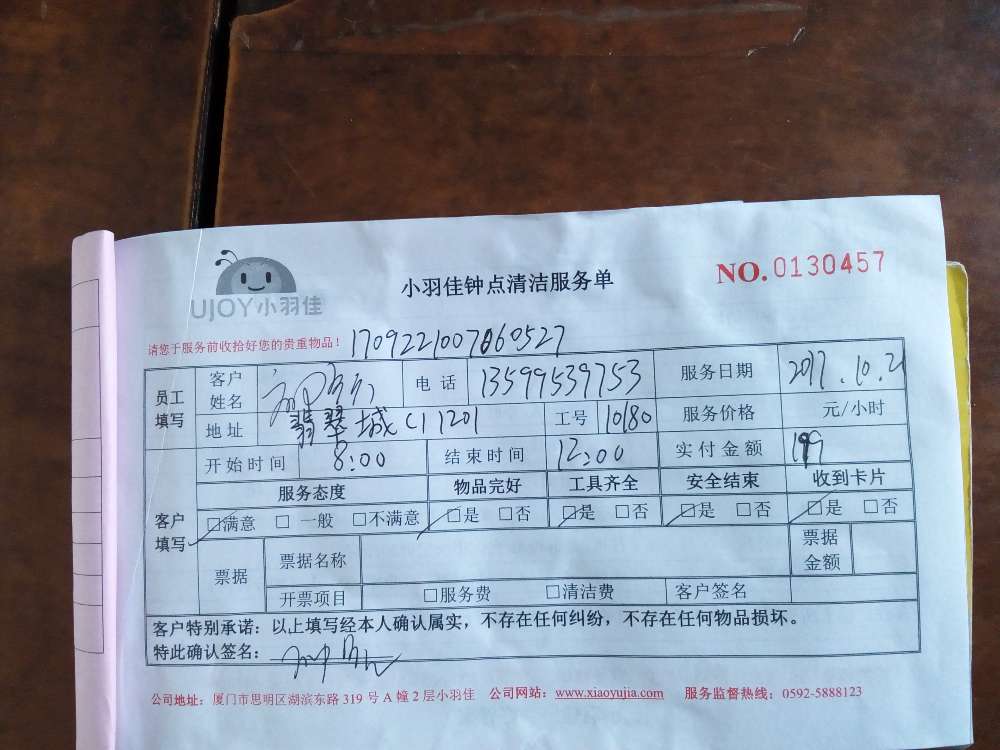 UJOY小羽佳
小羽佳钟点清洁服务单
NO.0130457
请您于服务前收拾好您的贵重物品！ 1709221007060527
员工填写 客户姓名 电话 13599539753 服务日期 2017.10.21
地址 翡翠城C1 1201 工号 1080 服务价格 元/小时
客户填写 开始时间 8:00 结束时间 12:00 实付金额 199
服务态度 物品完好 工具齐全 安全结束 收到卡片
☑满意 □一般 □不满意 ☑是 □否 ☑是 □否 ☑是 □否 ☑是 □否
票据 票据名称 票据金额
开票项目 □服务费 □清洁费 客户签名
客户特别承诺：以上填写经本人确认属实，不存在任何纠纷，不存在任何物品损坏。
特此确认签名：
公司地址：厦门市思明区湖滨东路319号A幢2层小羽佳 公司网站：www.xiaoyujia.com 服务监督热线：0592-5888123